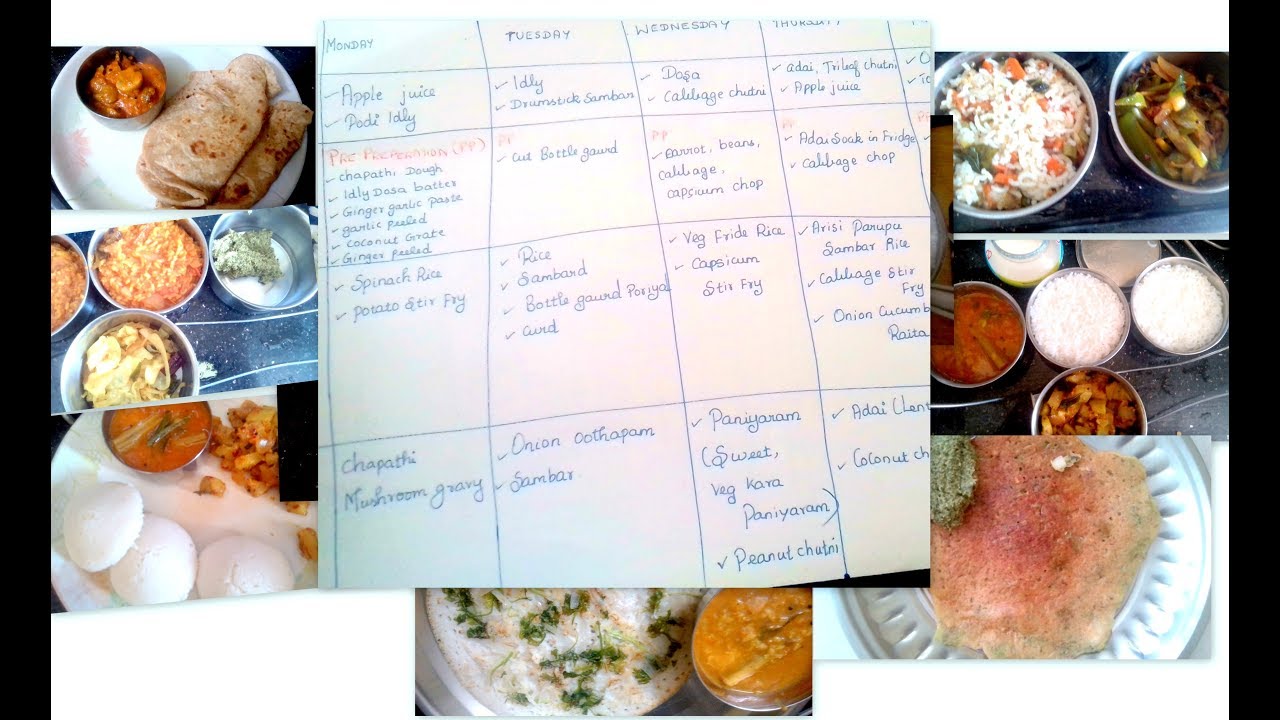 MONDAY
TUESDAY
WEDNESDAY
THURSDAY
✓ Apple juice
✓ Podi Idly
✓ Idly
✓ Drumstick Sambar
✓ Dosa
✓ Cabbage chutni
✓ adai, Trileaf chutni
✓ Apple juice
PRE PREPERATION (PP)
✓ chapathi Dough
✓ Idly Dosa batter
✓ Ginger garlic Paste
✓ garlic peeled
✓ Coconut Grate
✓ Ginger peeled
PP
✓ Cut Bottle gaurd
PP
✓ Carrot, beans,
cabbage,
capsicum chop
PP
✓ Adai Soak in Fridge
✓ Cabbage chop
✓ Spinach Rice
✓ potato Stir Fry
✓ Rice
✓ Sambard
✓ Bottle gaurd Poriyal
✓ curd
✓ Veg Fride Rice
✓ Capsicum
Stir Fry
✓ Arisi Parupu
Sambar Rice
✓ Cabbage Stir
Fry
✓ Onion Cucumb
Raita
chapathi
Mushroom gravy
✓ Onion Oothapam
✓ Sambar
✓ Paniyaram
(Sweet,
Veg Kara
Paniyaram)
✓ Peanut chutni
✓ Adai (Len
✓ Coconut ch